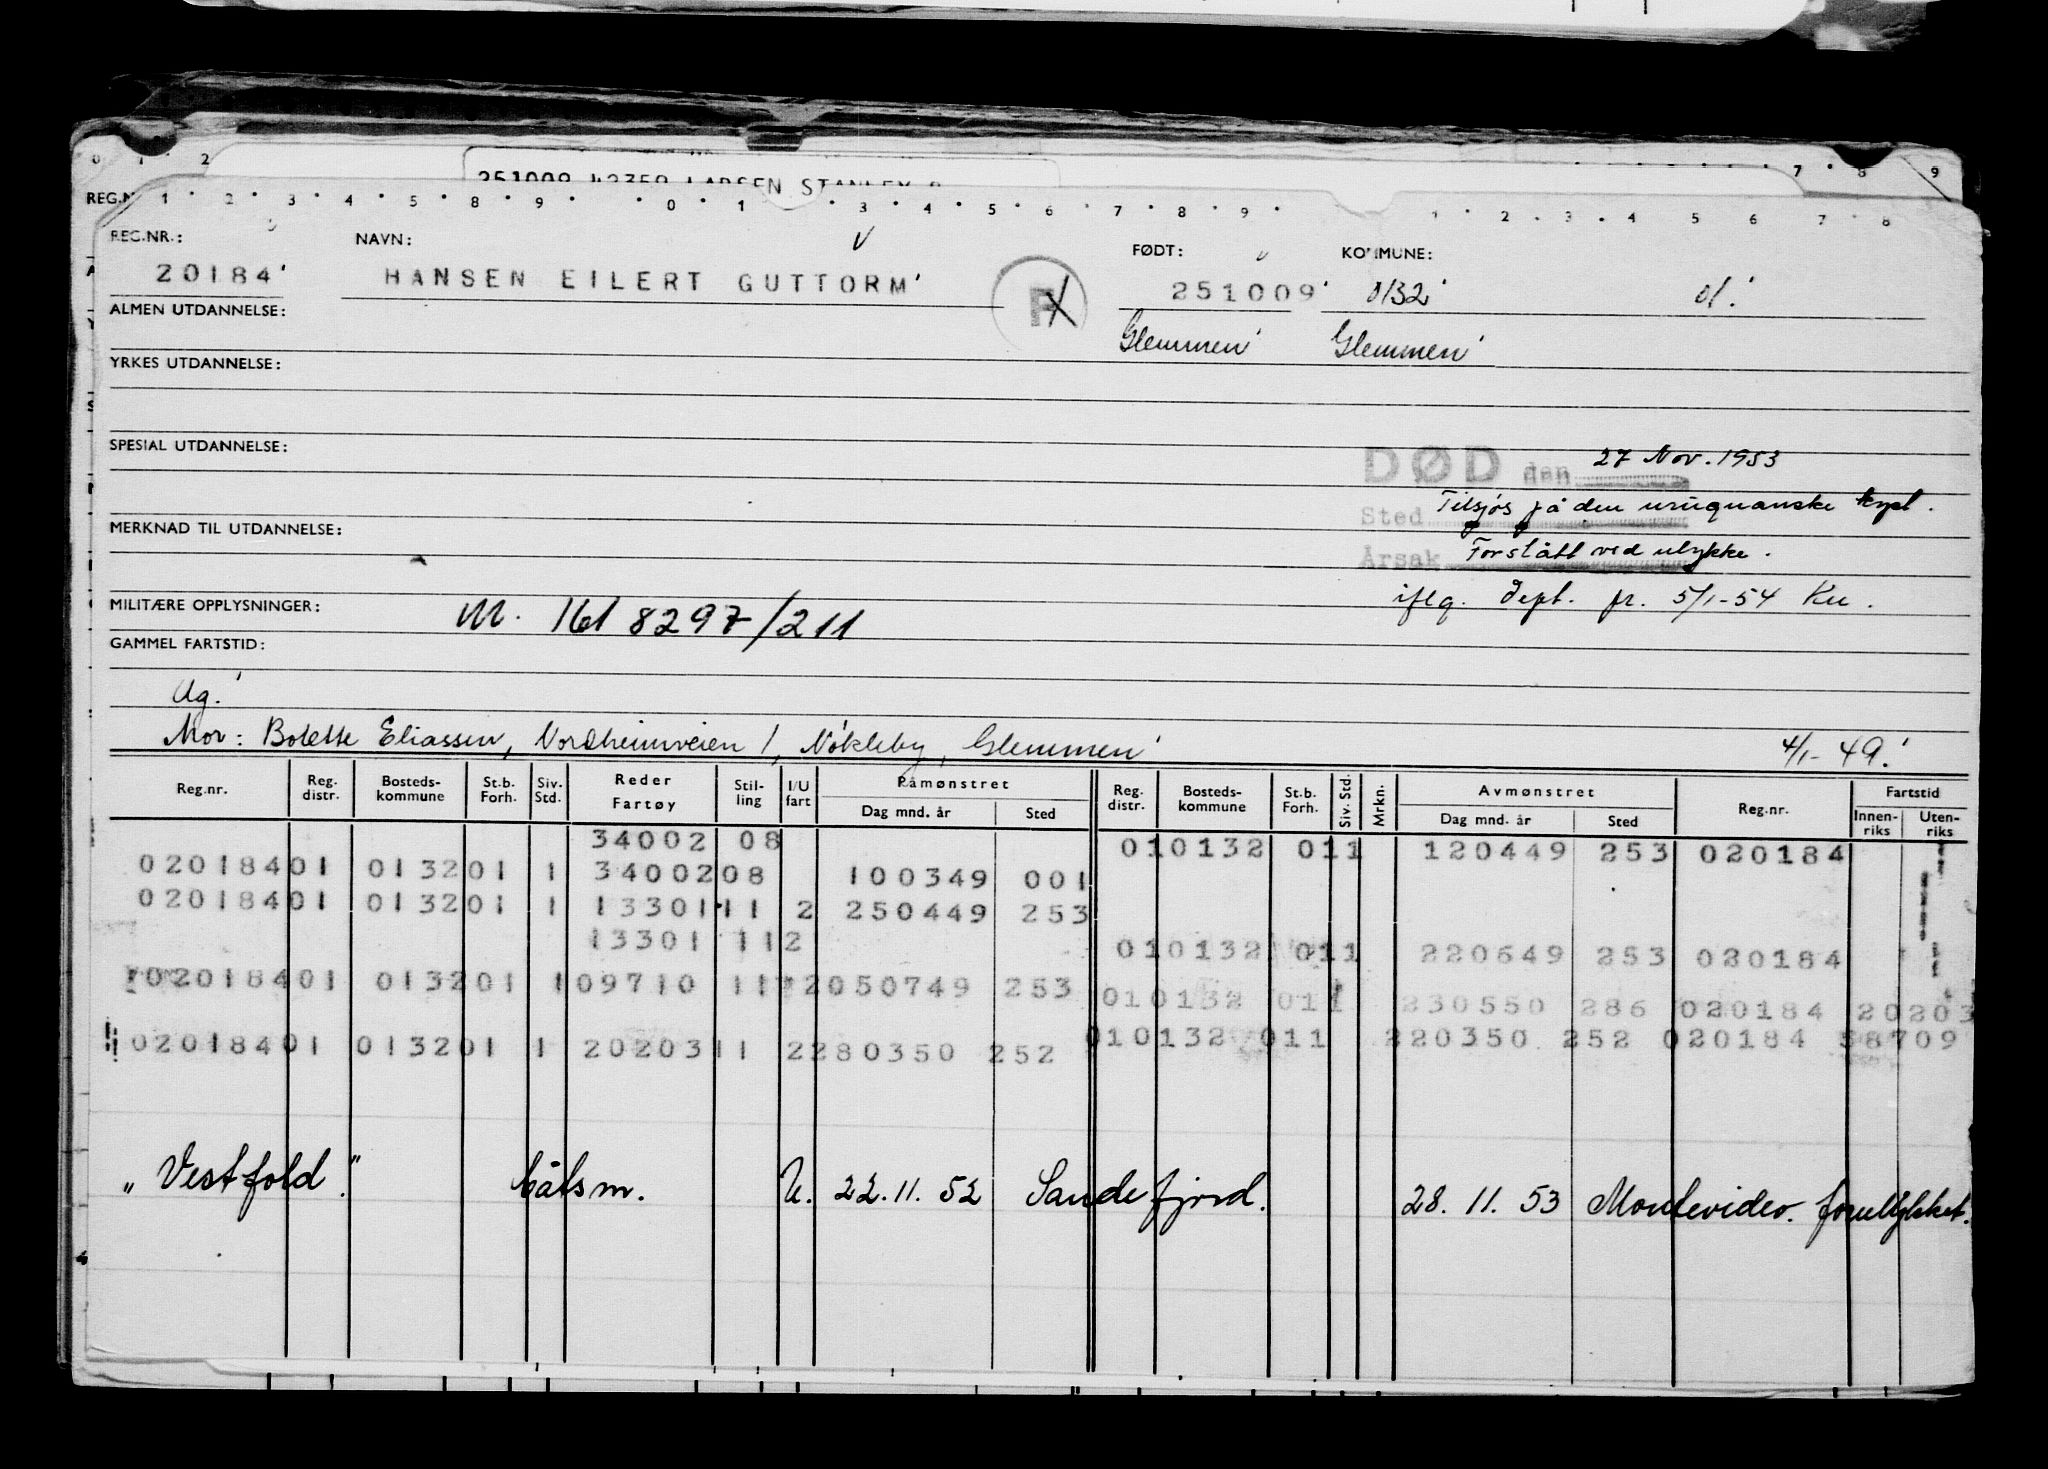 0 1 2 7 8 9
251009 42359 LARSEN STANLEY
REG.N 1 2 3 4 5 8 9 0 1 3 4 5 6 7 8 9 1 2 3 4 5 6 7 8
REG.NR.: NAVN: FØDT: KOMMUNE:
20184 HANSEN EILERT GUTTORM 251009 0132 01.
ALMEN UTDANNELSE: Glemmen Glemmen
YRKES UTDANNELSE:
SPESIAL UTDANNELSE: DØD den 27 Nov. 1953
Sted Tilsjøs på den uruguanske kyst.
MERKNAD TIL UTDANNELSE:
Årsak Forslått ved ulykke.
MILITÆRE OPPLYSNINGER: M. 161 8297/211 iflg. Dept. fr. 5/1-54 Ku.
GAMMEL FARTSTID:
Ug.
Mor: Bolette Eliassen, Nordheimveien 1, Nökleby, Glemmen 4/1-49.
Reg.nr. Reg. distr. Bosteds-kommune St.b. Forh. Siv. Std. Reder Fartøy Stil-ling I/U fart Påmønstret Dag mnd. år Sted Reg. distr. Bosteds-kommune St.b. Forh. Siv. Std. Mrkn. Avmønstret Dag mnd. år Sted Reg.nr. Fartstid Innen-riks Uten-riks
34002 08 010132 011 120449 253 020184
02018401 013201 1 3400208 100349 001
02018401 013201 1 1330111 2 250449 253
13301 112 010132 011 220649 253 020184
02018401 013201 109710 11 2050749 253 010132 011 230550 286 020184 20203
02018401 013201 1 2020311 2280350 252 010132 011 220350 252 020184 58709
„Vestfold." båtsm. U. 22.11.52 Sandefjord. 28.11.53 Montevideo. forulykket.